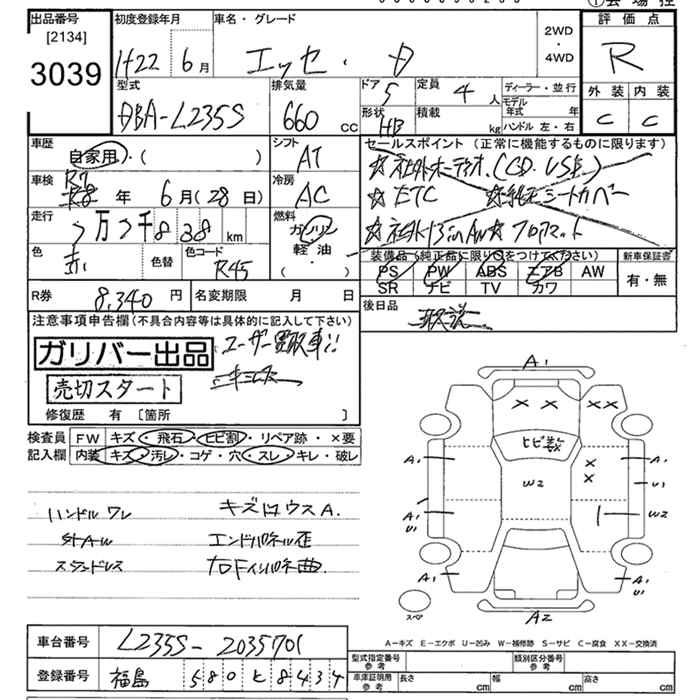 出品番号 初度登録年月 車名・グレード 評価点
[2134]
3039 H22 6月 エッセ・D 2WD・4WD R
型式 排気量 ドア 定員 ディーラー・並行 外装 内装
DBA-L235S 660cc 5 4人 モデル年式 年 C C
形状 積載 HB kg ハンドル 左・右
車歴 シフト セールスポイント(正常に機能するものに限ります)
自家用・( ) AT ☆社外オーディオ.(CD.USB.)
車検 冷房 ☆ETC ☆純正シートカバー
R7 年 6月(28日) AC ☆社外13inAW☆フロアマット
走行 燃料 装備品(純正品に限り○をつけてください) 新車保証書
5万5千838km ガソリン PS PW ABS エアB AW 有・無
色 色替 色コード 軽油 SR ナビ TV カワ
赤 R45 ( )
R券 8,340円 名変期限 月 日 後日品 取説
注意事項申告欄(不具合内容等は具体的に記入して下さい)
ガリバー出品 ユーザー買取車!!
売切スタート
修復歴 有 [箇所 ]
検査員 FW キズ・飛石・ヒビ割・リペア跡・×要
記入欄 内装 キズ・汚レ・コゲ・穴・スレ・キレ・破レ
ハンドル ワレ キズ凹ウスA.
社外AW エンドパネル歪
スタッドレス 右Fインパネ曲
A1
×× ××
ヒビ割
A1 × A1
W2 × U1
A1 U1 W2
A1 A1 U1
スペア A2
A-キズ E-エクボ U-凹み W-補修跡 S-サビ C-腐食 XX-交換済
車台番号 L235S-2035701 型式指定番号 参考 類別区分番号 参考
登録番号 福島 580 ヒ 8434 車庫証明用 参考 長さ cm 幅 cm 高さ cm